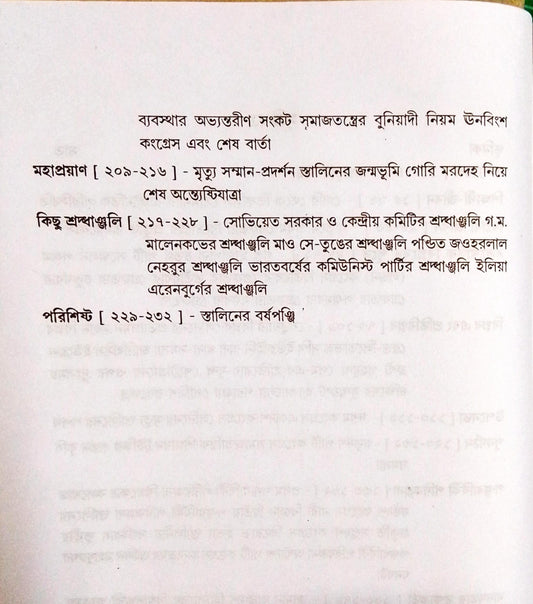 ব্যবস্থার অভ্যন্তরীণ সংকট সমাজতন্ত্রের বুনিয়াদী নিয়ম ঊনবিংশ
কংগ্রেস এবং শেষ বার্তা
মহাপ্রয়াণ [ ২০৯-২১৬ ] - মৃত্যু সম্মান-প্রদর্শন স্তালিনের জন্মভূমি গোরি মরদেহ নিয়ে
শেষ অন্ত্যেষ্টিযাত্রা
কিছু শ্রদ্ধাঞ্জলি [ ২১৭-২২৮ ] - সোভিয়েত সরকার ও কেন্দ্রীয় কমিটির শ্রদ্ধাঞ্জলি গ.ম.
মালেনকভের শ্রদ্ধাঞ্জলি মাও সে-তুঙের শ্রদ্ধাঞ্জলি পন্ডিত জওহরলাল
নেহরুর শ্রদ্ধাঞ্জলি ভারতবর্ষের কমিউনিস্ট পার্টির শ্রদ্ধাঞ্জলি ইলিয়া
এরেনবুর্গের শ্রদ্ধাঞ্জলি
পরিশিষ্ট [ ২২৯-২৩২ ] - স্তালিনের বর্ষপঞ্জি